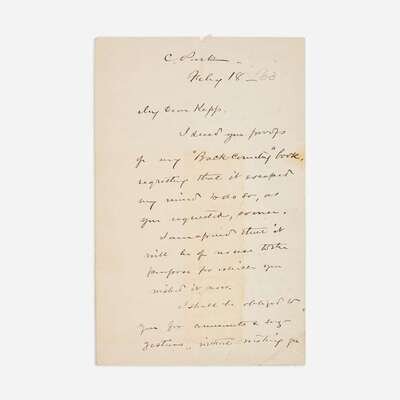 C. Park
Feby 18 '60
My Dear Kapp.
I send you proofs
of my "Back Country" book,
regretting that it escaped
my mind to do so, as
you requested, sooner.
I am afraid that it
will be of no use to the
purpose for which you
wished it now.
I shall be obliged to
you for comments & sug-
gestions, without